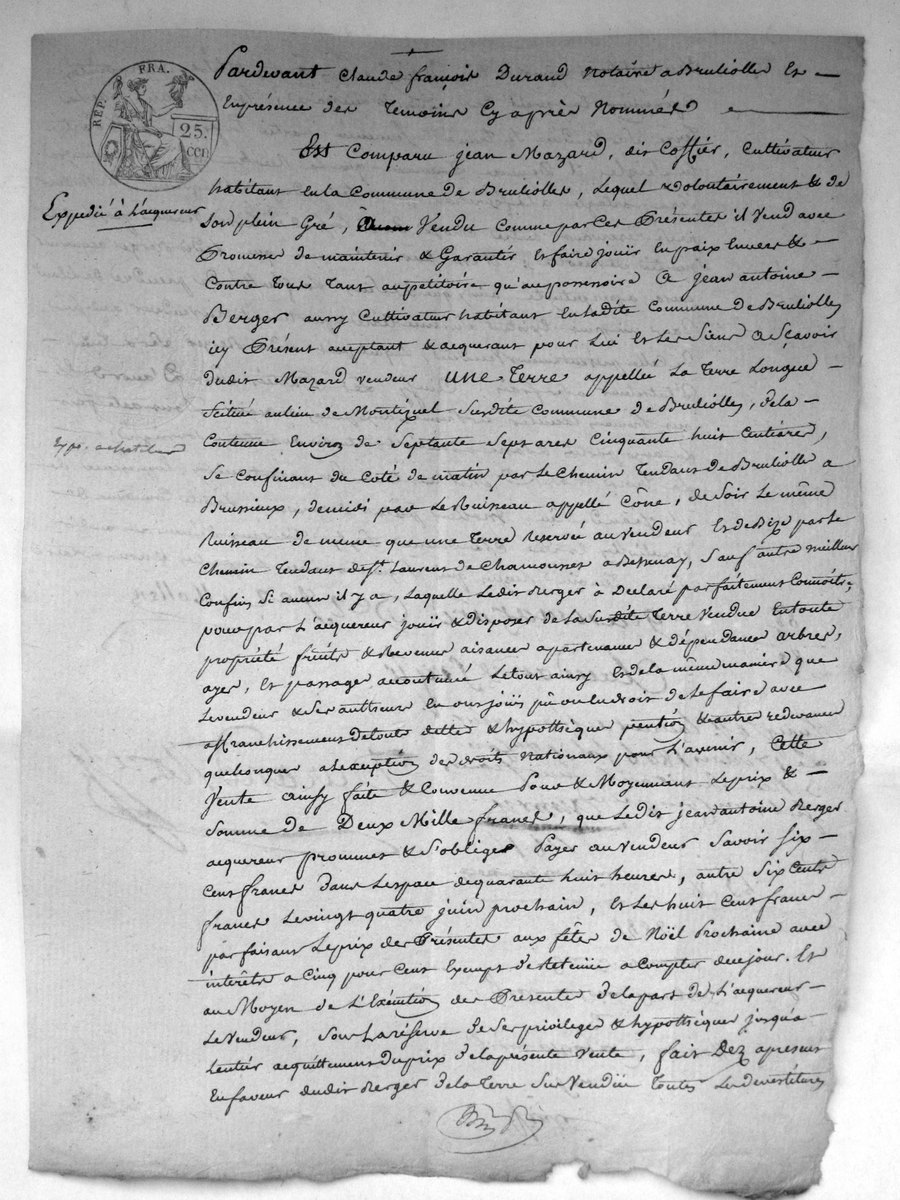 REP. FRA.
25.
cen
Expedié à l'acquereur
Pardevant Claude françois Durand Notaire a Brullioles Et
En présence des Temoins Cy après Nommés
Est Comparu jean Mazard, dit Coffier, Cultivateur
habitant En la Commune de Brullioles, Lequel volontairement & de
Son plein Gré, Vendu Comme par Ces Présentes il Vend avec
Promesse de maintenir & Garantir Et faire jouir En paix Envers &
Contre tous Tant au petitoire qu'au possessoire a jean antoine
Berger aussy Cultivateur habitant En ladite Commune de Brullioles
icy Présent acceptant & acquerant pour Lui Et Les Siens a Scavoir
dudit Mazard Vendeur une Terre appellée La Terre Longue
Scituée au lieu de Montiquel Susdite Commune de Brullioles, de la
Contenue Environ de Septante Sept ares Cinquante huit Centiares,
Se Confinant du Coté de matin par Le Chemin Tendant de Brulliole a
Brussieux, de midi par Le Ruisseau appellé Cône, de Soir Le même
Ruisseau de meme que une Terre Reservée au Vendeur Et de Bize par Le
Chemin Tendant de St. Laurent de Chamousset a Bessenay, Sauf autre meilleur
Confin Si aucun il y a, Laquelle Ledit Berger à Declaré parfaitement Connoitre,
pour par L'acquereur jouir & disposer de La Susdite Terre Vendue En toute
propriété fruits & Revenus aisances apartenances & dépendances arbres,
ayes, Et passages accoutumés Le tout ainsy Et de la même maniere que
Le vendeur & Ses autheurs En ont joüis pû ou dû droit de Le faire avec
affranchissement de toute dettes & hypothèques pention & autres redevances
quelconques a L'exeption des droits Nationaux pour L'avenir, Cette
Vente ainsy faite & Convenue Pour & Moyennant Le prix &
Somme de Deux Mille francs, que Ledit jean antoine Berger
acquereur prommet & S'oblige Payer au Vendeur Savoir Six
Cent francs dans L'espace de quarante huit heures, autre Six Cents
francs Le vingt quatre juin prochain, Et Les huit Cent francs
parfaisant Le prix des Présentes aux fêtes de Noël Prochaine avec
intérêts a Cinq pour Cent Exempt de Retenüe a Compter de ce jour. Et
au Moyen de L'Exécution des Présentes de la part de L'acquereur
Le Vendeur, Sous La réserve de Ses privileges & hypothèques jusqu'a
L'entier acquittement du prix de la présente Vente, fait Dez apresent
En faveur dudit Berger de la Terre Sus Vendüe Toutes Les devestitures